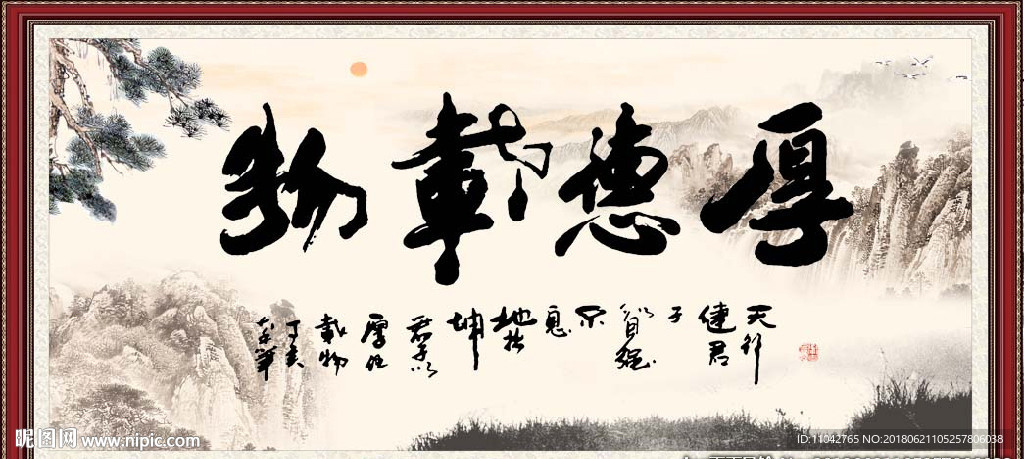 厚德載物
天行
健君
子
以自强
不
息
地势
坤
君子以
厚德
載物
丁亥
昵图网 www.nipic.com
ID:11042765 NO:20180621105257806038